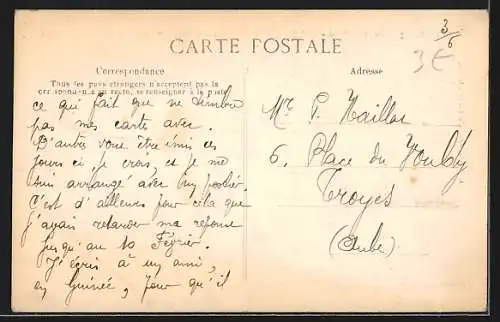 3/6
3€
CARTE POSTALE
Correspondance
Tous les pays étrangers n'acceptent pas la
correspondance au recto, se renseigner à la poste
Adresse
ce qui fait que ne
pas mes carte avec.
D'autres vont être émis ces
jours ci je crois, et je me
suis arrangé avec un postier.
C'est d'ailleurs pour cela que
j'ayais retarder ma réponse
jusqu'au 10 Février.
J'écris à un ami,
en Guinée, pour qu'il
Mr P. Maillot
6, Place du
Troyes
(Aube)